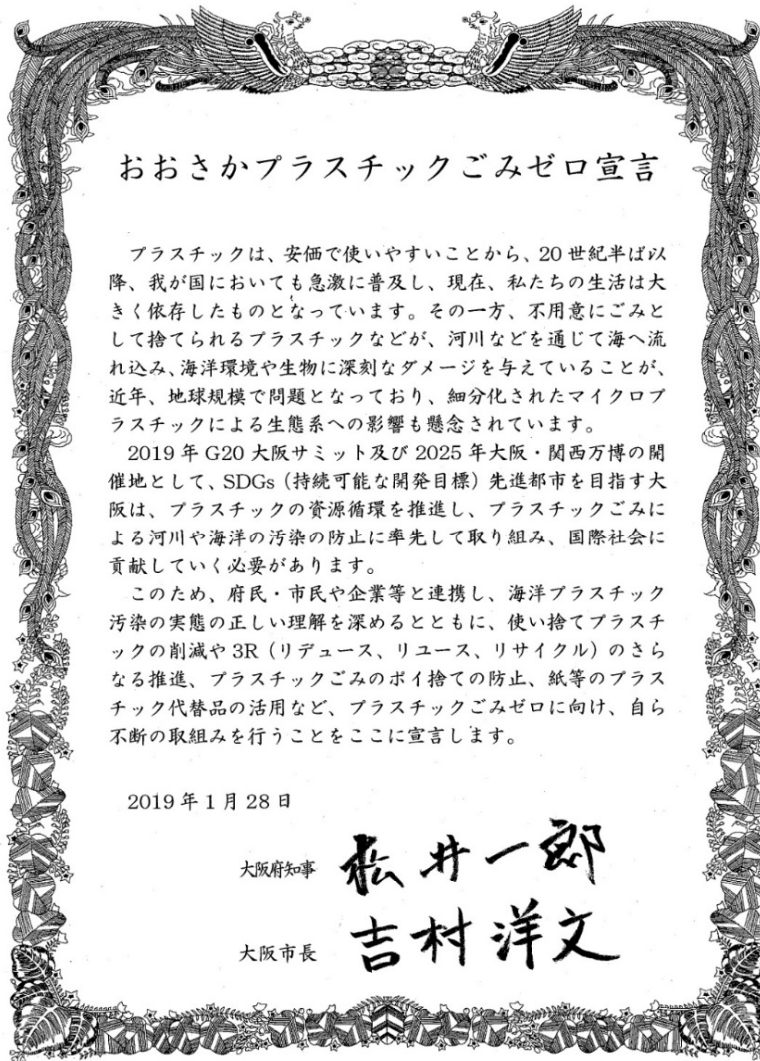 おおさかプラスチックごみゼロ宣言
プラスチックは、安価で使いやすいことから、20世紀半ば以
降、我が国においても急激に普及し、現在、私たちの生活は大
きく依存したものとなっています。その一方、不用意にごみと
して捨てられるプラスチックなどが、河川などを通じて海へ流
れ込み、海洋環境や生物に深刻なダメージを与えていることが、
近年、地球規模で問題となっており、細分化されたマイクロプ
ラスチックによる生態系への影響も懸念されています。
2019年G20大阪サミット及び2025年大阪・関西万博の開
催地として、SDGs（持続可能な開発目標）先進都市を目指す大
阪は、プラスチックの資源循環を推進し、プラスチックごみに
よる河川や海洋の汚染の防止に率先して取り組み、国際社会に
貢献していく必要があります。
このため、府民・市民や企業等と連携し、海洋プラスチック
汚染の実態の正しい理解を深めるとともに、使い捨てプラスチ
ックの削減や3R（リデュース、リユース、リサイクル）のさら
なる推進、プラスチックごみのポイ捨ての防止、紙等のプラス
チック代替品の活用など、プラスチックごみゼロに向け、自ら
不断の取組みを行うことをここに宣言します。
2019年1月28日
大阪府知事 松井一郎
大阪市長 吉村洋文